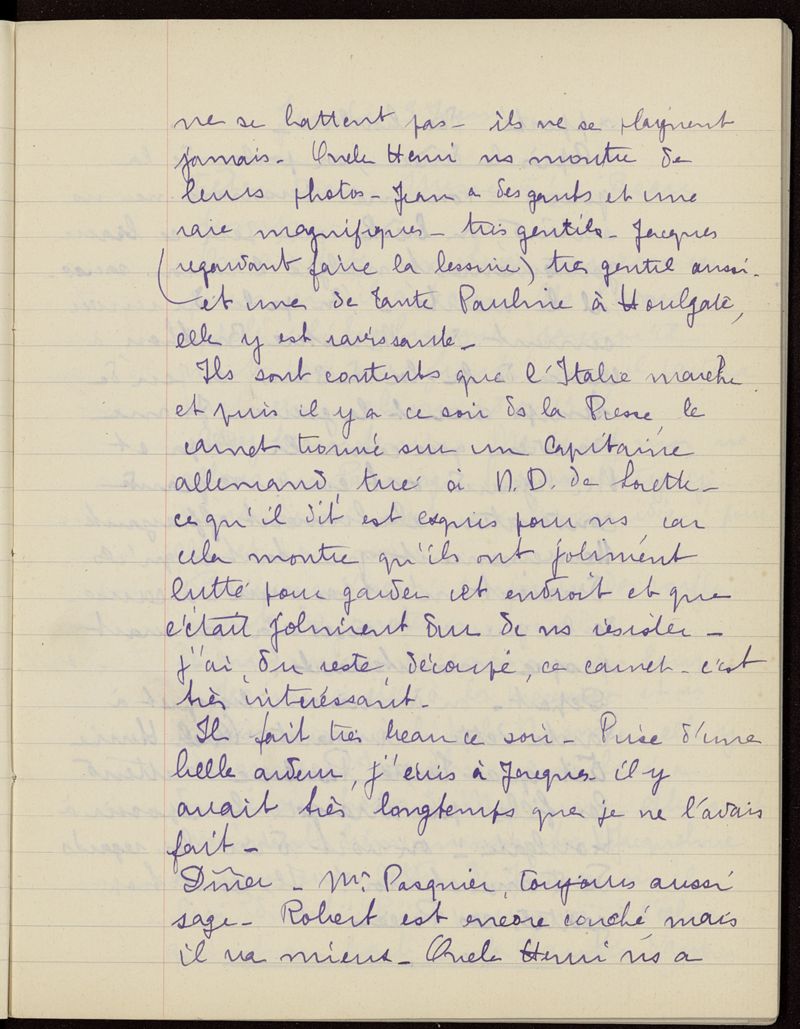 ne se battent pas - ils ne se plaignent
jamais - Oncle Henri ns montre de
leurs photos - Jean a des gants et une
raie magnifiques - très gentils - Jacques
(regardant faire la lessive) très gentil aussi -
et une de tante Pauline à Houlgate,
elle y est ravissante -
Ils sont contents que l'Italie marche
et puis il y a ce soir ds la Presse le
carnet trouvé sur un Capitaine
allemand, tué à N.D. de Lorette -
ce qu'il dit est exquis pour ns, car
cela montre qu'ils ont joliment
lutté pour garder cet endroit et que
c'était joliment dur de ns résister -
j'ai, du reste, découpé, ce carnet - c'est
très intéressant -
Il fait très beau ce soir - Prise d'une
belle ardeur, j'écris à Jacques - il y
avait très longtemps que je ne l'avais
fait -
Dîner - Mr Pasquier, toujours aussi
sage - Robert est encore couché, mais
il va mieux - Oncle Henri ns a